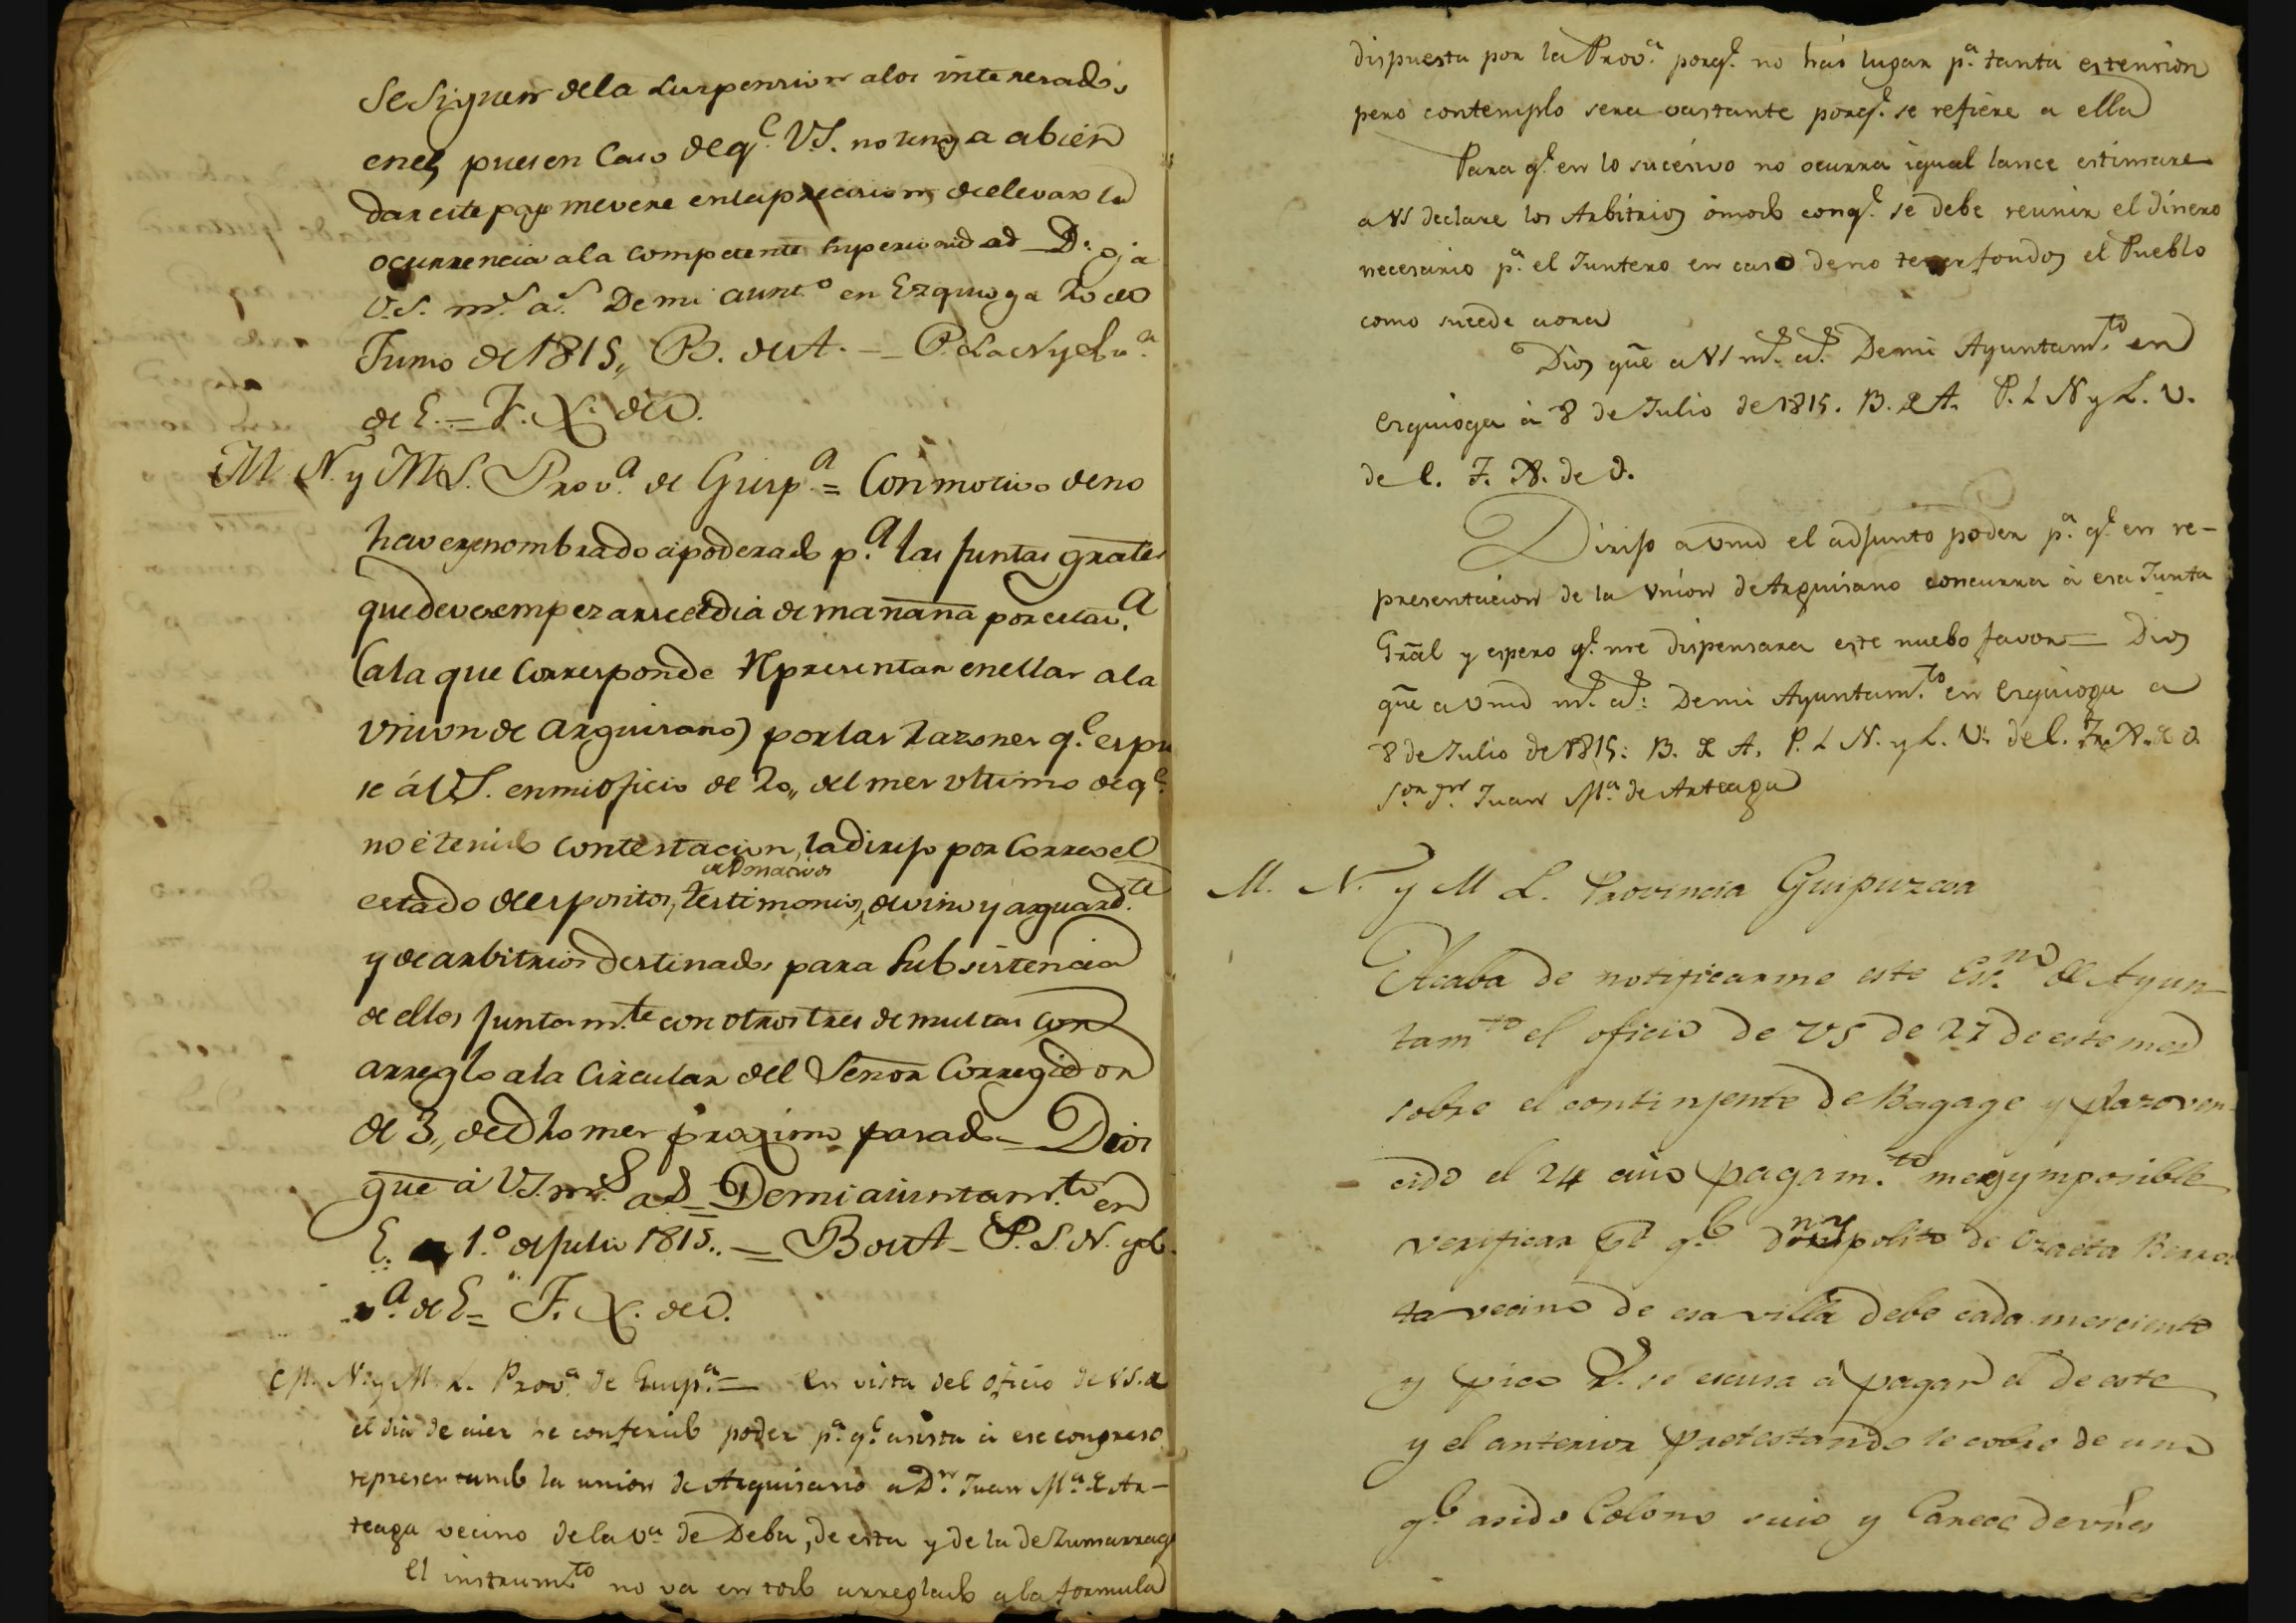 Se siguen dela Suspension alos interesados
enel, pues en Caso deq.e V.S. no tenga abien
dar este pago mevere enlaprecision de elevar la
ocurrencia ala Competente Superioridad D.
V.S. m.s a.s De mi aunt.o en Ezquioga 20 de
Junio de 1815,, B. de A. – P. L. N y L. v.a
de E. = F. X. de O.
M. N. y M. L. Prov.a de Guip.a = Con motivo de no
haverse nombrado apoderado p.a las Juntas grales
que deven empezarse el dia de mañana por esta v.a
(ala que Corresponde representar enellas ala
Vnion de Arguisano) por las razones q.e espu
se á V.S. enmi oficio de 20,, del mes vltimo de q.e
no é tenido Contestacion, la dirijo por Correo el
estado de espositos, testimonios, de vino y aguard.te
y de arbitrios destinados para Subsistencia
de ellos Juntam.te con otros tres de multas con
arreglo ala Circular del Señor Corregidor
de 3,, de dho mes proximo pasado = Dios
gue à V.S. m.s a.s = De mi aiuntam.to en
E. 1.o de Julio 1815.. = B. de A – P. L. N. y L.
v.a de E = F. X. de O.
M. N. y M. L. Prov.a de Guip.a = En vista del oficio de VS. de
el dia de aier he conferido poder p.a q.e asista à ese congreso
representando la union de Arguisano a D.n Juan M.a de Ar-
teaga vecino de la v.a de Deba, de esta y de la de Zumarraga
El instrum.to no va en todo arreglado a la formula
dispuesta por la Prov.a porq.e no hai lugar p.a tanta estension
pero contemplo sera vastante porq.e se refiere a ella
Para q.e en lo sucesivo no ocurra igual lance estimare
a VS declare los Arbitrios ò modo con q.e se debe reunir el dinero
necesario p.a el Juntero en caso de no tener fondos el Pueblo
como sucede aora
Dios gue a VS m.s a.s De mi Ayuntam.to en
Ezquioga à 8 de Julio de 1815. B. de A. P. L N y L. V.
de E. F. X. de O.
Dirijo a vmd el adjunto poder p.a q.e en re-
presentacion de la Vnion de Arguisano concurra à esa Junta
Gral y espero q.e me dispensara este nuebo favor = Dios
gue a vmd m.s a.s De mi Ayuntam.to en Ezquioga a
8 de Julio de 1815: B. de A. P. L N. y L. V. de E. F. X. de O.
S.or D.n Juan M.a de Arteaga
M. N. y M L. Provincia Guipuzcoa
Acaba de notificarme este Ess.no de Ayun-
tam.to el oficio de VS de 27 de este mes
sobre el continjente de Bagage y plazo ven-
cido el 24 cuio pagam.to me es ymposible
verificar q.e D.n Ypolito de Ozaeta Berroe
ta vecino de esa villa debe cada mes ciento
y pico R.s se escusa à pagar el de este
y el anterior pretestando se cobre de uno
q.e a sido Colono suio y Carece de vnes